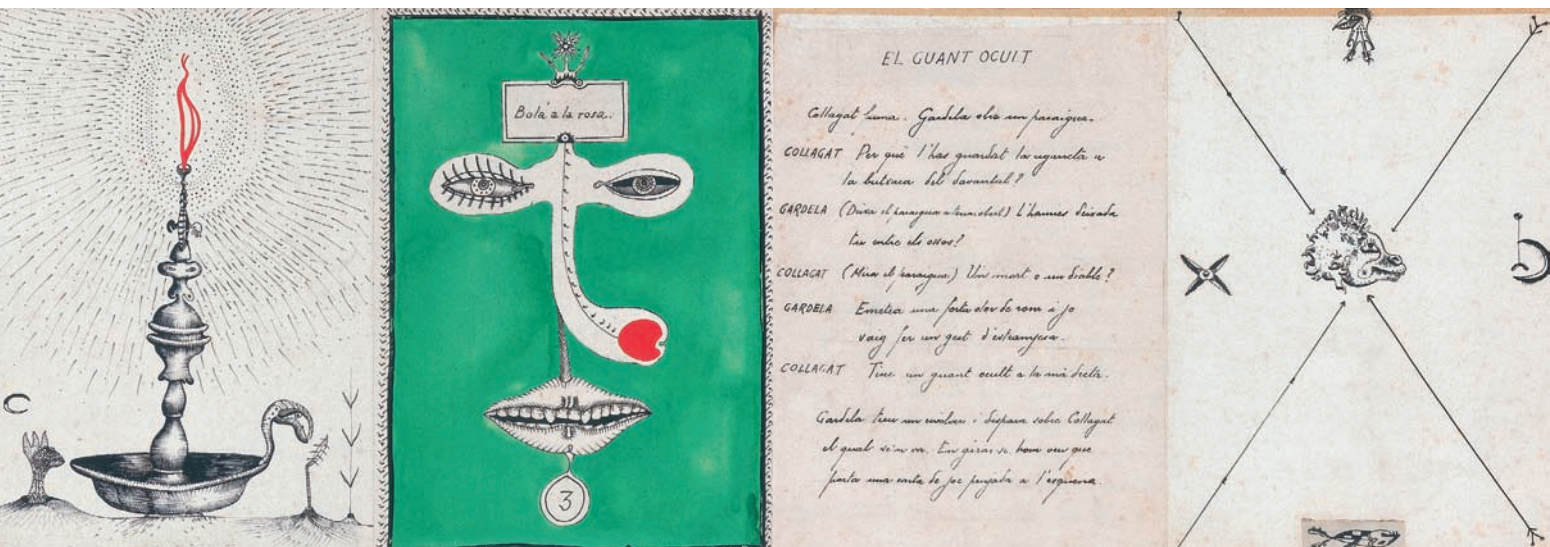 Bolà a la rosa.
3
EL GUANT OCULT
Collagat fuma. Gardela obre un paraigua.
COLLAGAT Per què l'has guardat la ungüeta a
la butxaca del davantal?
GARDELA (Deixa el paraigua a terra obert) L'hauries deixada
tu entre els ossos?
COLLAGAT (Mira el paraigua.) Un mort o un diable?
GARDELA Emetia una forta olor de rom i jo
vaig fer un gest d'estranyesa.
COLLAGAT Tinc un guant ocult a la mà dreta.
Gardela treu un revòlver i dispara sobre Collagat
el qual se'n va. En girar-se, hom veu que
porta una carta de joc penjada a l'esquena